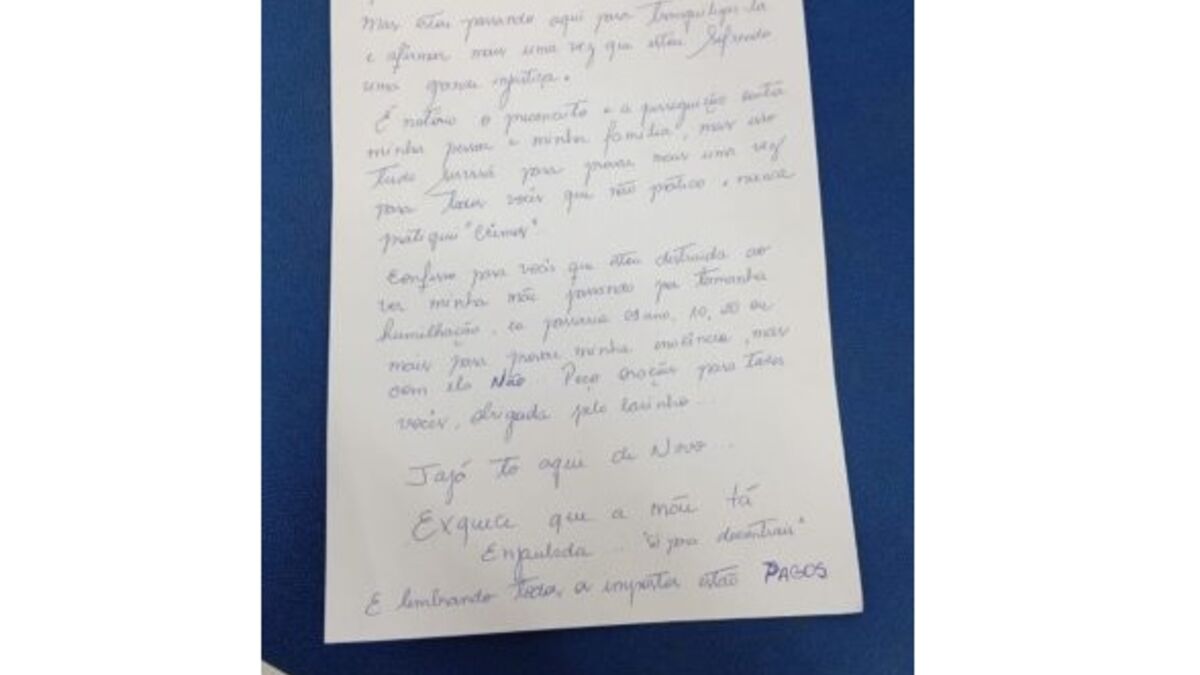 Mas estou passando aqui para tranquiliza-la
e afirmar mais uma vez que estou sofrendo
uma grande injustiça.
É notório o preconceito e a perseguição contra
minha pessoa e minha família, mas isso
tudo servirá para provar mais uma vez
para todos vocês que não prático e nunca
prátiquei "Crimes"
Confesso para vocês que estou destruida ao
ver minha mãe passando por tamanha
humilhação, eu passaria 01 ano, 10, 20 ou
mais para provar minha inocência, mas
com ela Não. Peço oração para todos
vocês, obrigada pelo carinho...
Jajá to aqui de Novo...
Exquece que a mãe tá
Enjaulada... "só para descontrair"
E lembrando todos os imposto estão PAGOS